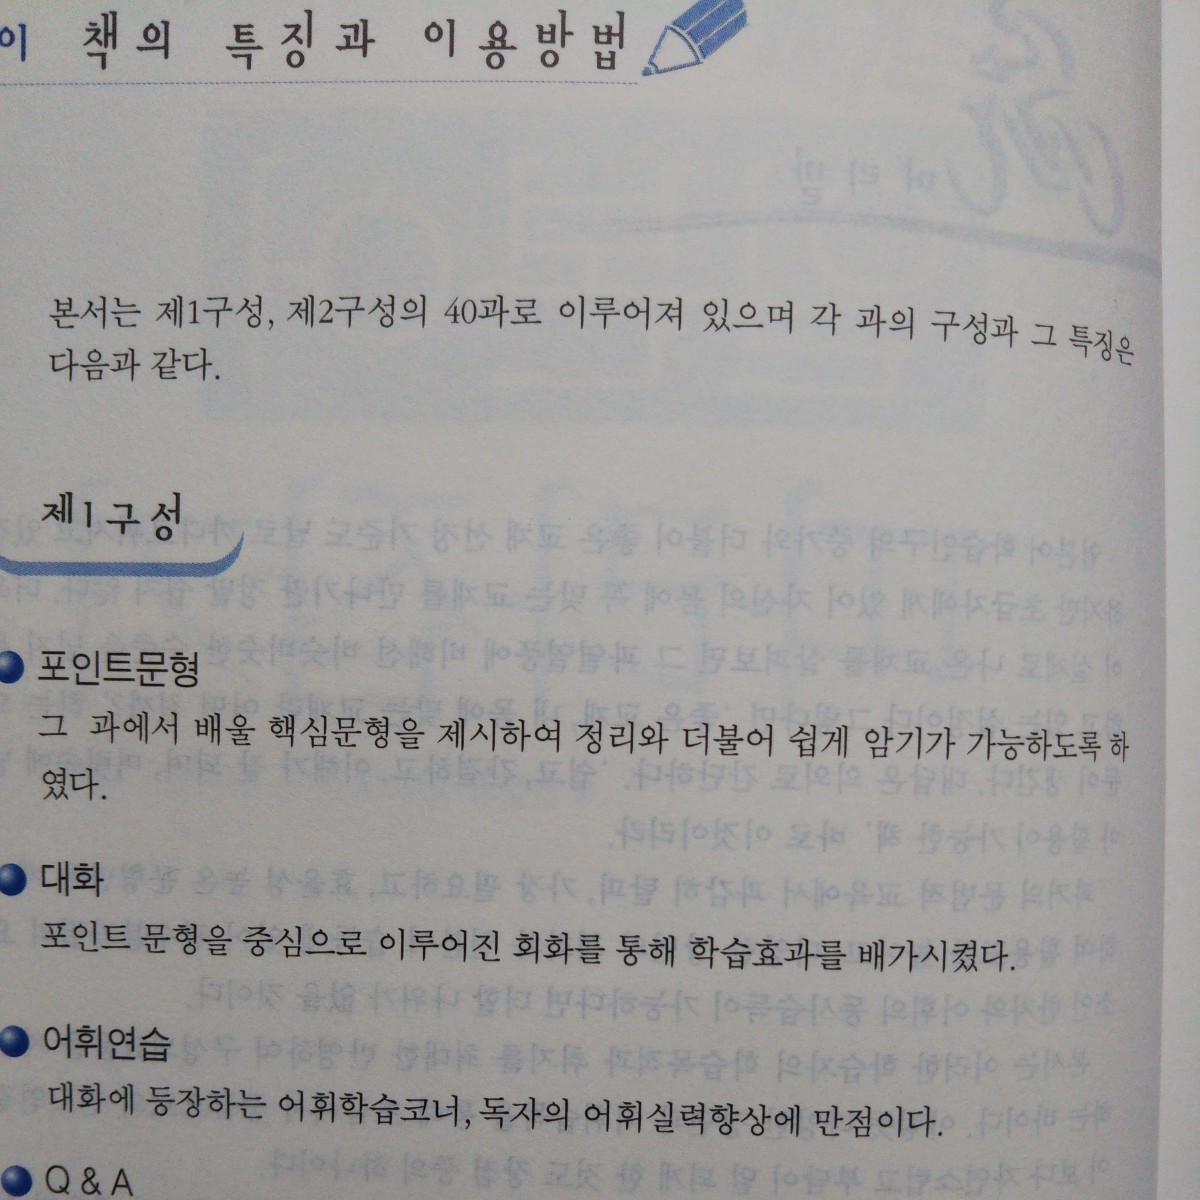 이 책의 특징과 이용방법
머리말
본서는 제1구성, 제2구성의 40과로 이루어져 있으며 각 과의 구성과 그 특징은
다음과 같다.
제1구성
포인트문형
그 과에서 배울 핵심문형을 제시하여 정리와 더불어 쉽게 암기가 가능하도록 하
였다.
대화
포인트 문형을 중심으로 이루어진 회화를 통해 학습효과를 배가시켰다.
어휘연습
대화에 등장하는 어휘학습코너, 독자의 어휘실력향상에 만점이다.
Q & A